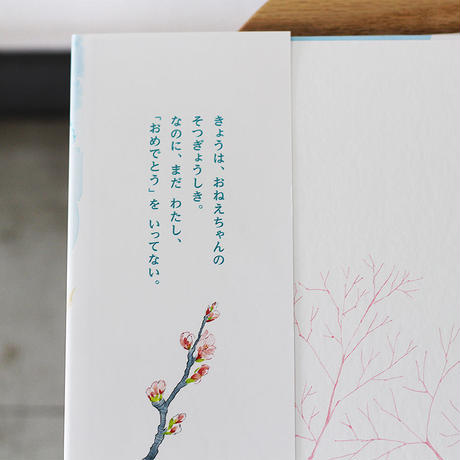 きょうは、おねえちゃんの
そつぎょうしき。
なのに、まだ わたし、
「おめでとう」を いってない。